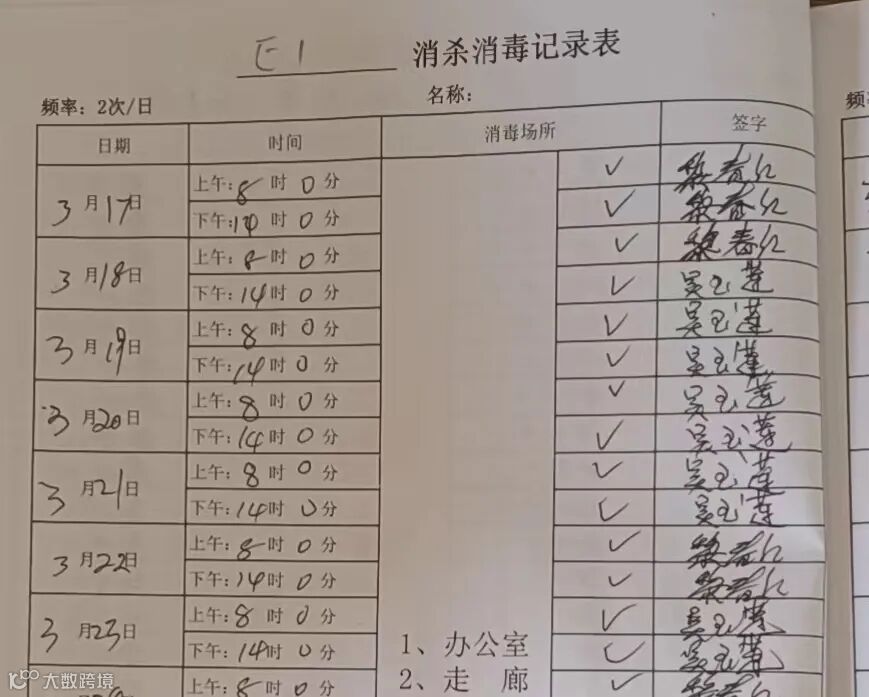 E1 消杀消毒记录表
频率：2次/日 名称：
日期 时间 消毒场所 签字
3月17日 上午：8时0分 ✓ 黎春红
下午：14时0分 ✓ 黎春红
3月18日 上午：8时0分 ✓ 黎春红
下午：14时0分 ✓ 吴玉莲
3月19日 上午：8时0分 ✓ 吴玉莲
下午：14时0分 ✓ 吴玉莲
3月20日 上午：8时0分 ✓ 吴玉莲
下午：14时0分 ✓ 吴玉莲
3月21日 上午：8时0分 ✓ 吴玉莲
下午：14时0分 ✓ 吴玉莲
3月22日 上午：8时0分 ✓ 黎春红
下午：14时0分 ✓ 黎春红
3月23日 上午：8时0分 ✓ 吴玉莲
下午：14时0分 1、办公室 ✓ 吴玉莲
上午：8时0分 2、走廊 ✓ 黎春红
大数跨境